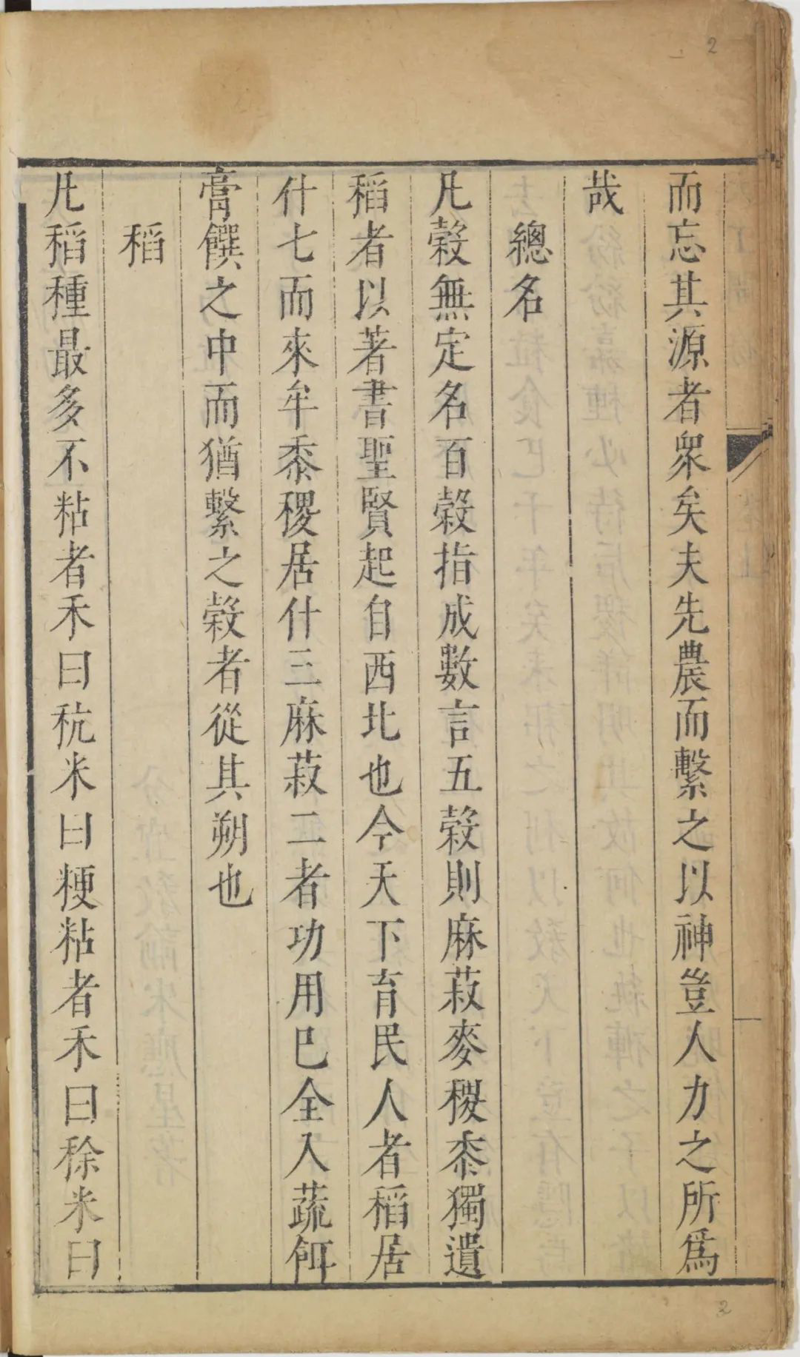 而忘其源者衆矣夫先農而繫之以神豈人力之所爲
哉
總名
凡穀無定名百穀指成數言五穀則麻菽麥稷黍獨遺
稻者以著書聖賢起自西北也今天下育民人者稻居
什七而來牟黍稷居什三麻菽二者功用巳全入蔬餌
膏饌之中而猶繫之穀者從其朔也
稻
凡稻種最多不粘者禾曰秔米曰粳粘者禾曰稌米曰
2
2